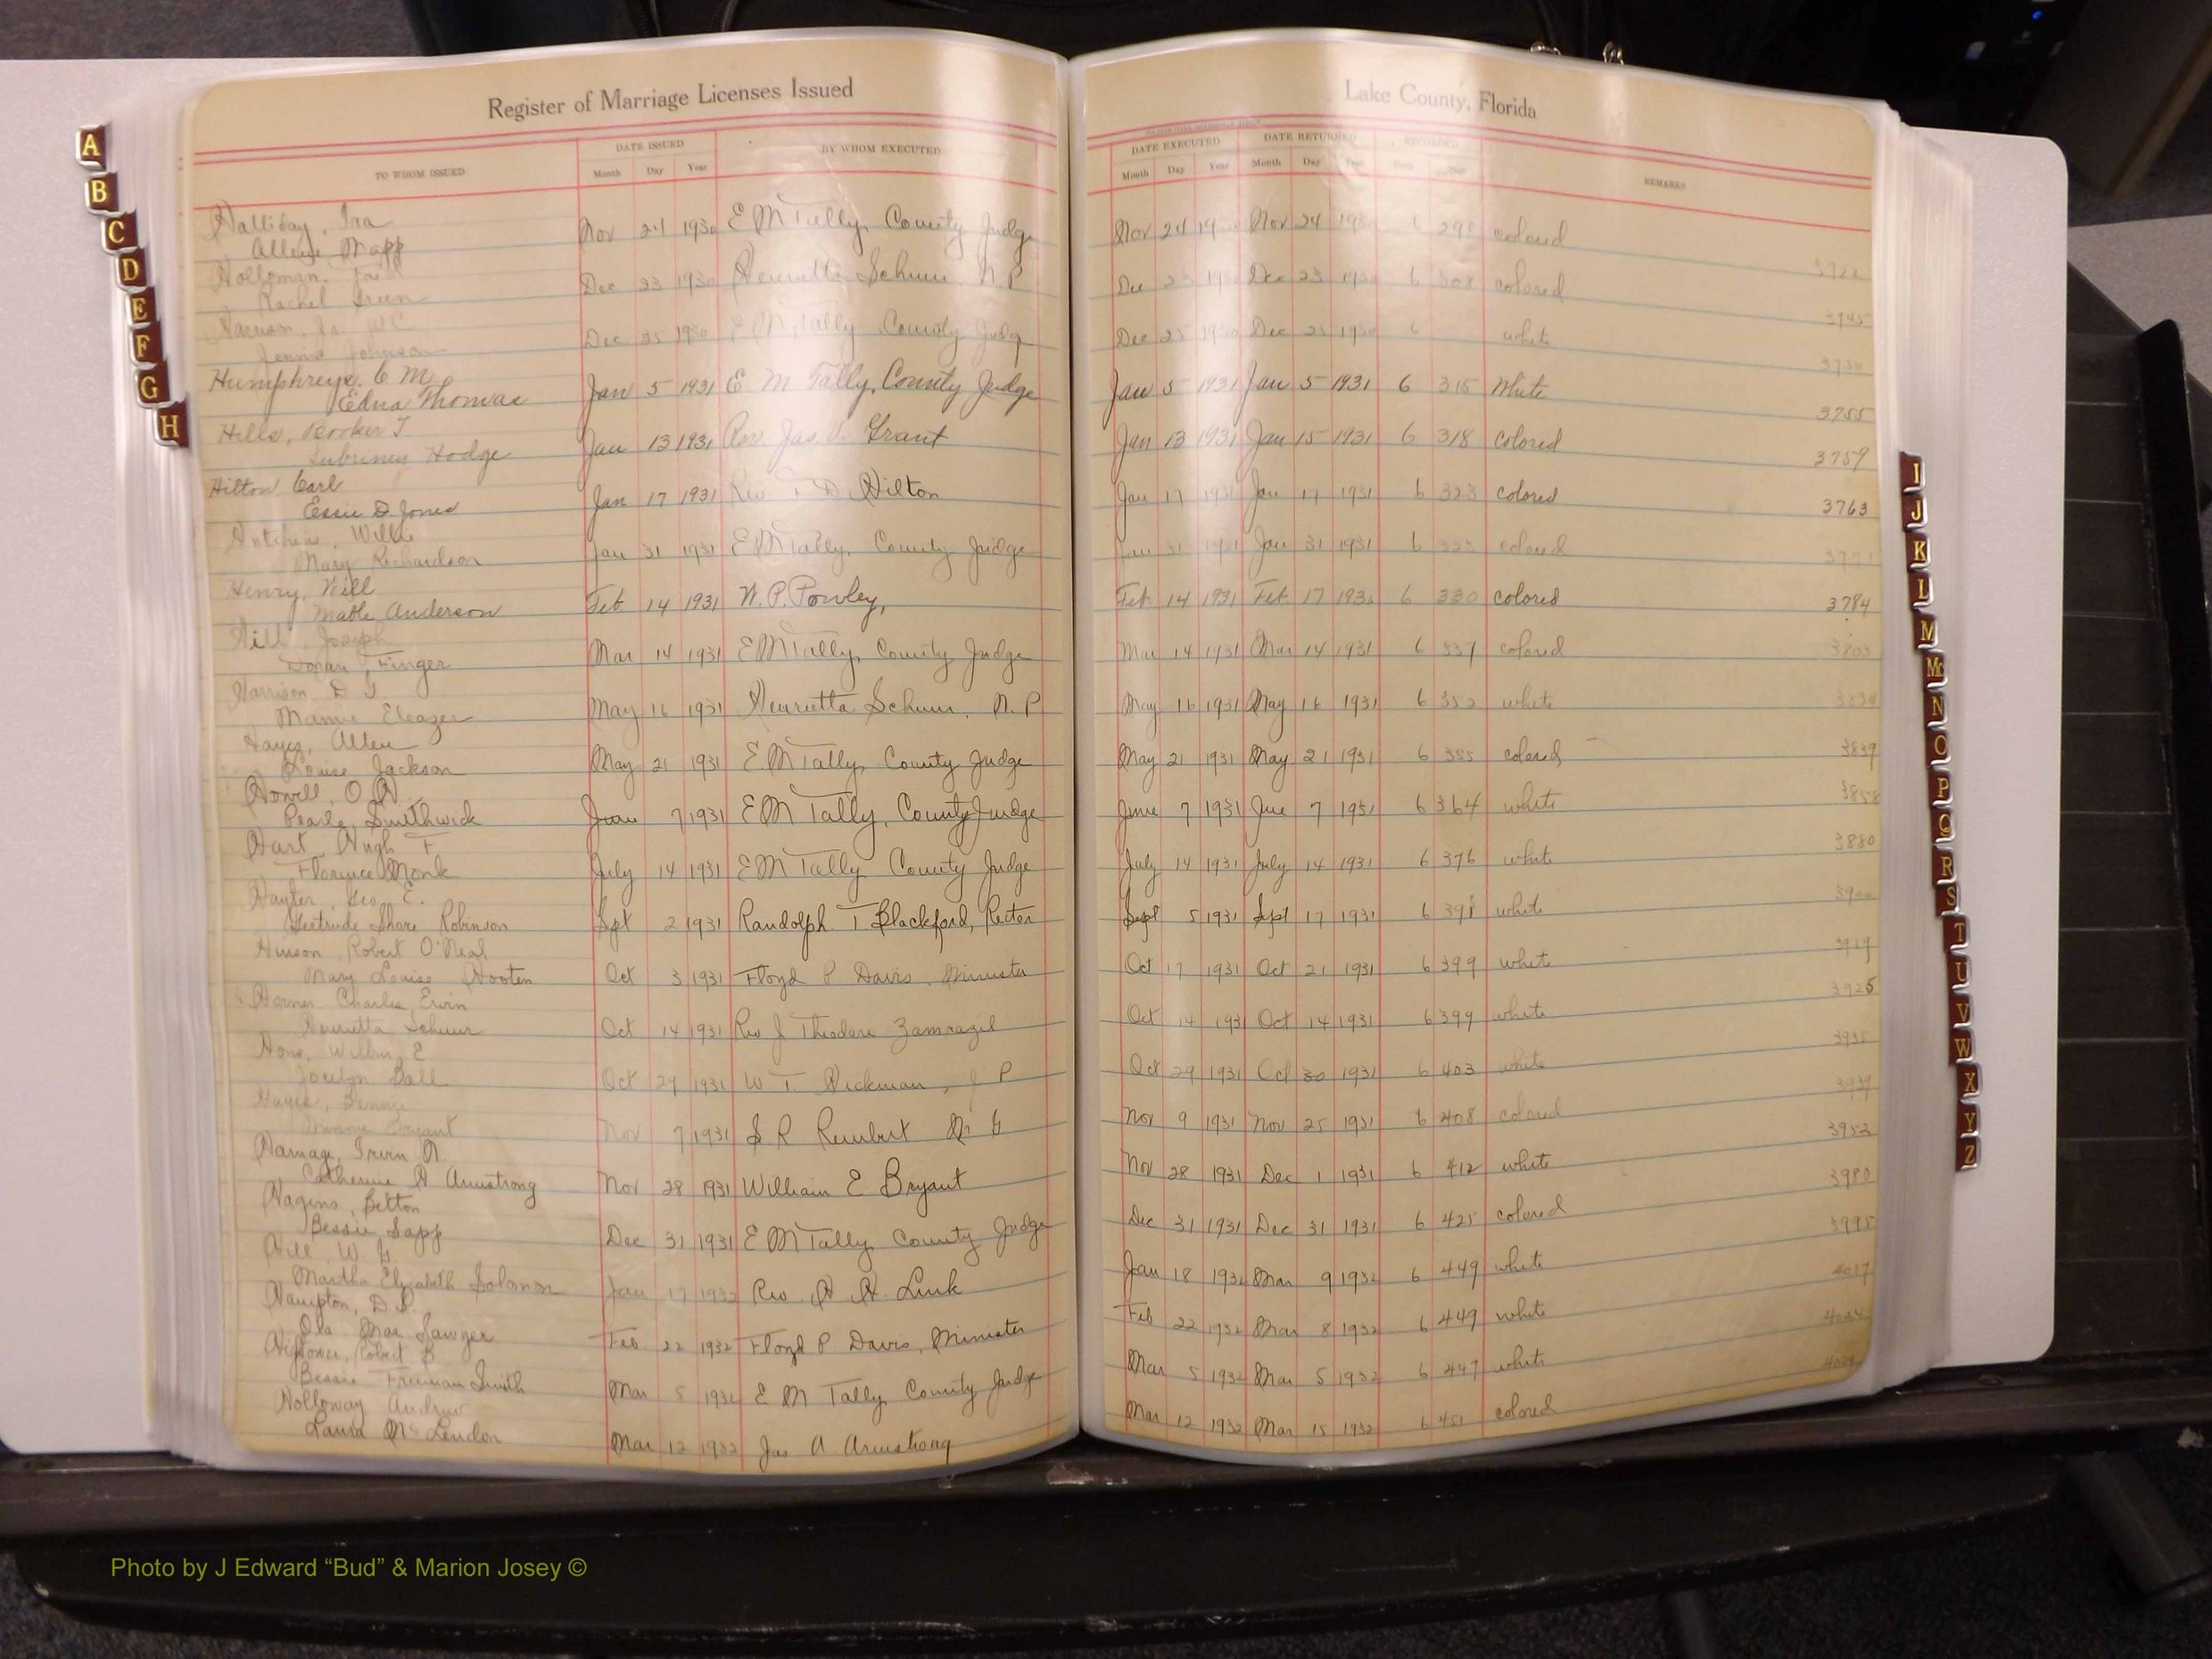 Register of Marriage Licenses Issued
Lake County, Florida
TO WHOM ISSUED DATE ISSUED BY WHOM EXECUTED DATE EXECUTED DATE RETURNED RECORDED REMARKS
Month Day Year Month Day Year Month Day Year
Halliday, Ira
Allene Mapp Nov 24 1930 E M Tally, County Judge Nov 24 19 Nov 24 1930 6 298 colored 3722
Holloman,
Rachel Green Dec 23 1930 Henrietta Schuur N. P. Dec 23 19 Dec 23 1930 6 308 colored 3745
Harrison, Jr. W C
Jennie Johnson Dec 25 1930 E M Tally County Judge Dec 25 1930 Dec 25 1930 6 white 3750
Humphreys, C M.
Edna Thomas Jan 5 1931 E M Tally, County Judge Jan 5 1931 Jan 5 1931 6 315 White 3755
Hills, Booker T.
Hodge Jan 13 1931 Rev Jas. V. Grant Jan 13 1931 Jan 15 1931 6 318 colored 3759
Hilton Carl
Essie D Jones Jan 17 1931 Rev T D Hilton Jan 17 1931 Jan 17 1931 6 323 colored 3763
Hutchins, Willie
Mary Richardson Jan 31 1931 E M Tally, County Judge Jan 31 1931 Jan 31 1931 6 323 colored 3771
Henry, Will
Mable Anderson Feb 14 1931 W. P. Powley, Feb. 14 1931 Feb. 17 1931 6 330 colored 3784
Hill, Joseph
Finger Mar 14 1931 E M Tally, County Judge Mar 14 1931 Mar 14 1931 6 337 colored 3803
Harrison, D J.
Mamie Eleazer May 16 1931 Henrietta Schuur, N. P. May 16 1931 May 16 1931 6 352 white 3834
Hayes, Allen
Louise Jackson May 21 1931 E M Tally, County Judge May 21 1931 May 21 1931 6 355 colored 3839
Howell, O H.
Pearle Smithwick June 7 1931 E M Tally, County Judge June 7 1931 June 7 1931 6 364 white 3858
Hart, Hugh F
Florence Monk July 14 1931 E M Tally County Judge July 14 1931 July 14 1931 6 376 white 3880
Hayter, Geo. E.
Gertrude Shore Robinson Sept 2 1931 Randolph T. Blackford, Rector Sept 5 1931 Sept 17 1931 6 391 white 3900
Hinson, Robert O'Neal
Mary Louise Wooten Oct 3 1931 Floyd P Davis, Minister Oct 17 1931 Oct 21 1931 6 399 white 3919
Horner Charles Ervin
Henrietta Schuur Oct 14 1931 Rev J Theodore Oct 14 1931 Oct 14 1931 6 399 white 3926
Wilbur, E
Jocelyn Ball Oct 29 1931 W T. Hickman, J P Oct 29 1931 Oct 30 1931 6 403 white 3935
Bennie
Minnie Bryant Nov 7 1931 S R Rembert M G Nov 9 1931 Nov 25 1931 6 408 colored 3939
Hamage, Irvin H.
Catherine A Armstrong Nov 28 1931 William E Bryant Nov 28 1931 Dec 1 1931 6 412 white 3952
Hagins, Belton
Bessie Sapp Dec 31 1931 E M Tally County Judge Dec 31 1931 Dec 31 1931 6 425 colored 3980
Hill, W. G
Martha Elizabeth Solomon Jan 17 1932 Rev A H. Link Jan 18 1932 Mar 9 1932 6 449 white 3995
Hampton, D L.
Ola Mae Sawyer Feb 22 1932 Floyd P Davis, Minister Feb 22 1932 Mar 8 1932 6 449 white 4017
Hightower, Robert B
Bessie Freeman Smith Mar 5 1932 E M Tally County Judge Mar 5 1932 Mar 5 1932 6 447 white 4024
Holloway Andrew
Laura McLendon Mar 12 1932 Jas A Armstrong Mar 12 1932 Mar 15 1932 6 451 colored 4029
A
B
C
D
E
F
G
H
I
J
K
L
M
Mc
N
O
P
Q
R
S
T
U
V
W
X
Y
Z
Photo by J Edward “Bud” & Marion Josey ©